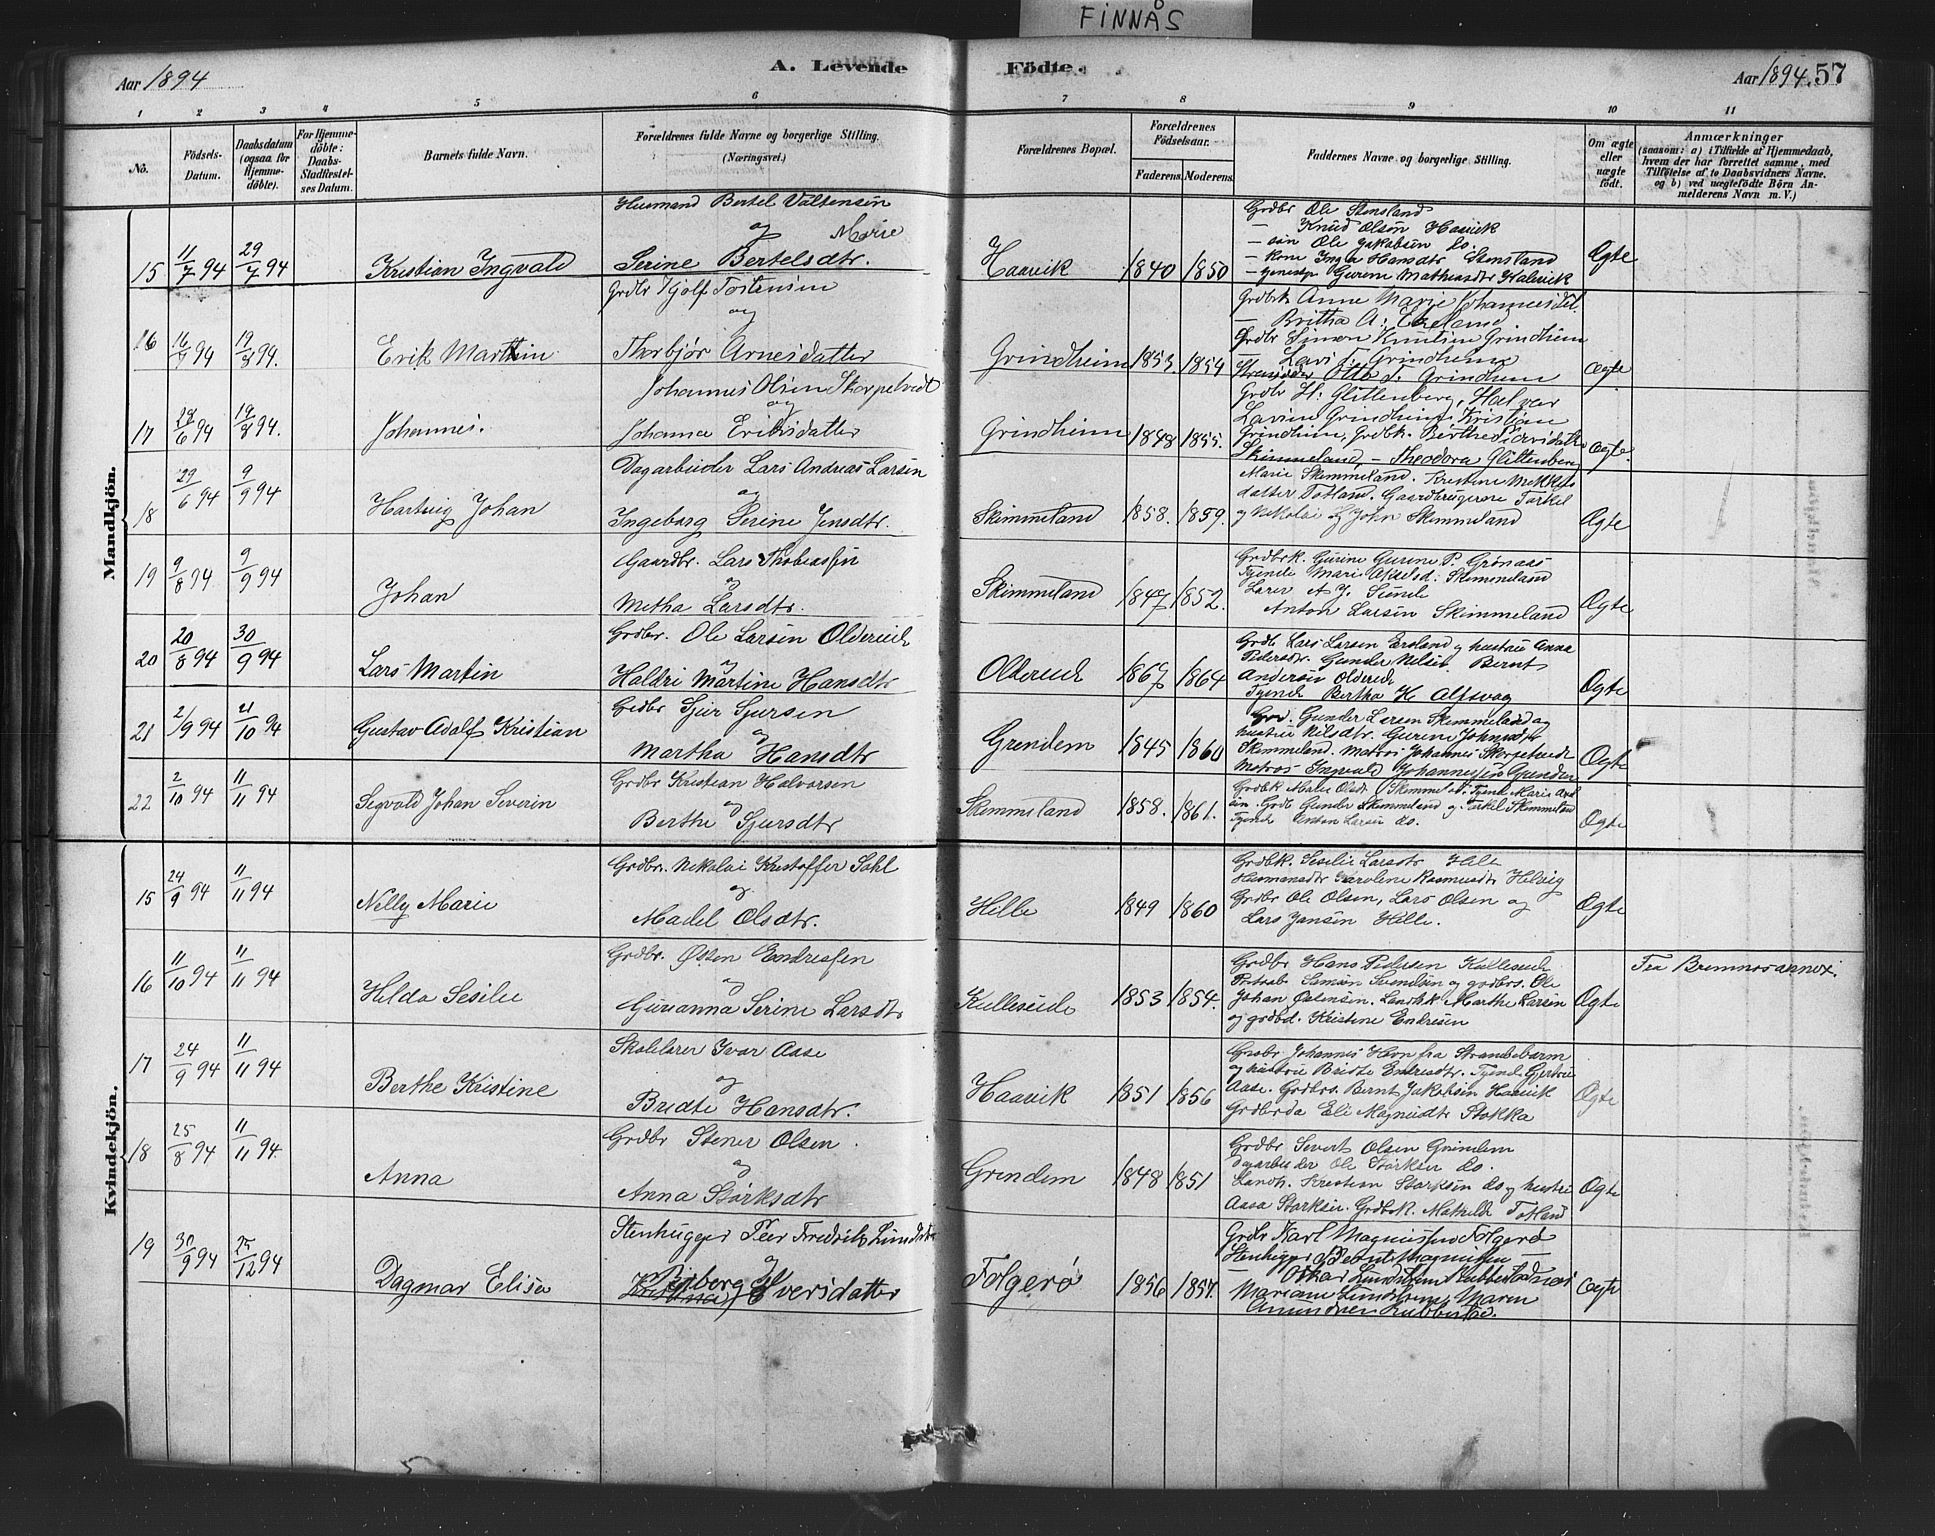 FINNÅS
Aar 1894
A. Levende
Födte.
Aar 1894. 57
1 2 3 4 5 6 7 8 9 10 11
No.
Födsels-Datum.
Daabsdatum (ogsaa for Hjemmedöbte).
For Hjemmedöbte: Daabs-Stadfestelses Datum.
Barnets fulde Navn.
Forældrenes fulde Navne og borgerlige Stilling. (Næringsvei.)
Forældrenes Bopæl.
Forældrenes Födselsaar.
Faderens. Moderens.
Faddernes Navne og borgerlige Stilling.
Om ægte eller uægte födt.
Anmærkninger
(saasom: a) i Tilfælde af Hjemmedaab, hvem der har forrettet samme, med Tilföielse af to Daabsvidners Navne. og b) ved uægtefödte Börn Anmelderens Navn m. V.)
Mandkjön.
15 11/7 94 29/7 94 Kristian Ingvald
Husmand Bertel Valtensen
og Marie
Serine Bertelsdtr.
Haavik 1840 1850
Grdbr Ole Stensland
— Knud Olsen Haavik
— søn Ole Jakobsen do.
— kone Inger Hansdtr Stensland
Ægte
16 94 94. Erik Marthin
Torbjør Arnesdatter
Grindheim 1853 1854
Grdbr Simon Knutsen Grindheim
Otto T. Grindheim
Ægte
17 28/6 94 94. Johannes.
Johannes Olsen Skorpetvedt
og
Johanna Eriksdatter
Grindheim 1848 1855.
Grdbr H. Glittenberg, Halvor
Skimmeland, — Theodora Glittenberg
Ægte.
18 29/6 94 9/9 94 Hartvig Johan
Dagarbeider Lars Andreas Larsen
og
Ingeborg Serine Jensdtr.
Skimmeland 1858. 1859.
Marie Skimmeland. Kristine Mikkels
datter Totland. Gaardbrugerne Torkel
og Nikolai og John Skimmeland
Ægte
19 9/8 94 9/9 94 Johan
Gaardbr. Lars Thobiassen
og
Metha Larsdtr.
Skimmeland 1847 1852.
Grdbrk. Gurine Gurine P. Grønaas
Tjende Mari Akselsd. Skimmeland
Lærer A J. Sunde
Anton Larsen Skimmeland
Ægte
20 20/8 94 30/9 94 Lars Martin
Grdbr. Ole Larsen Oldereide
og
Haldri Martine Hansdtr
Oldereide 1867 1864
Grdb Lars Larsen Ersland og hustru Anna
Pedersdtr. Gunder Nilsen. Bernt
Andersen Oldereide
Tjende Bertha H Alfsvag
Ægte
21 2/9 94 21/10 94 Gustav Adolf Kristian
Grdbr Sjur Sjursen
og
Martha Hansdtr
Grendem 1845 1860
Grd. Gunder Larsen Skimmeland og
hustru Nilsdtr. Gurine Johnsdtr
Skimmeland. Matros Johannes Skorpetvedt
Matros Ingvald Johannessen Grendem
Ægte
22 2/10 94 11/11 94 Segvald Johan Severin
Grdbr Kristian Halvorsen
og
Berthe Sjursdtr
Skimmeland 1858. 1861.
Grdb Gunder Skimmeland og Torkel Skimmeland
Tjende Anton Larsen do.
Ægte
Kvindekjön.
15 24/9 94 11/11 94 Nelly Marie
Grdbr. Nikolai Kristoffer Sahl
og
Madel Olsdtr.
Hille 1849 1860
Grdbk. Sesilie Larsdtr Hille
Husmansdtr Karolene Rasmusdtr Helvig
Grdbr Ole Olsen, Lars Olsen og
Lars Jansen Hille.
Ægte
16 11/10 94 11/11 94 Hilda Sesilie
Grdbr. Østen Endresen
og
Gurianna Serine Larsdtr
Kulleseide 1853 1854.
Grdbr Hans Pedersen Kulleseide
Johan Østensen. Landhk Marthe Larsen
og grdbd. Kristine Endresen
Ægte
Fra Bremnes annex.
17 24/9 94 11/11 94 Berthe Kristine
Skolelærer Ivar Aase
og
Bridte Hansdtr.
Haavik 1851 1856
Grdbr Johannes Havn fra Strandebarm
og hustru Bridte Endresdtr. Tjend. Gjertrue
Aase. Grdbrs. Bernt Jakobsen Haavik
Grdbrda Eli Magnusdtr Stokka
Ægte
18 25/8 94 11/11 94. Anna
Grdbr Stener Olsen
og
Anna Størksdtr
Grendem 1848 1851
Grdbr Sivert Olsen Grindem
dagarbeider Ole Størksen do.
Landh. Kristian Størksen do og hustru
Aasa Størksen. Grdbrk. Mathilde Totland
Ægte
19 30/9 94 25/12 94 Dagmar Elise
Stenhugger Peer Fredrik Lundstrøm
og
Iversdatter
Folgerø 1856 1857.
Grdbr Karl Magnussen Folgerø
Stenhugger Bernt Magnussen —
Oskar Lundstrøm Rubbestadnes
Mariane Lundstrøm, Maren
Amundsen Rubbestad.
Ægte